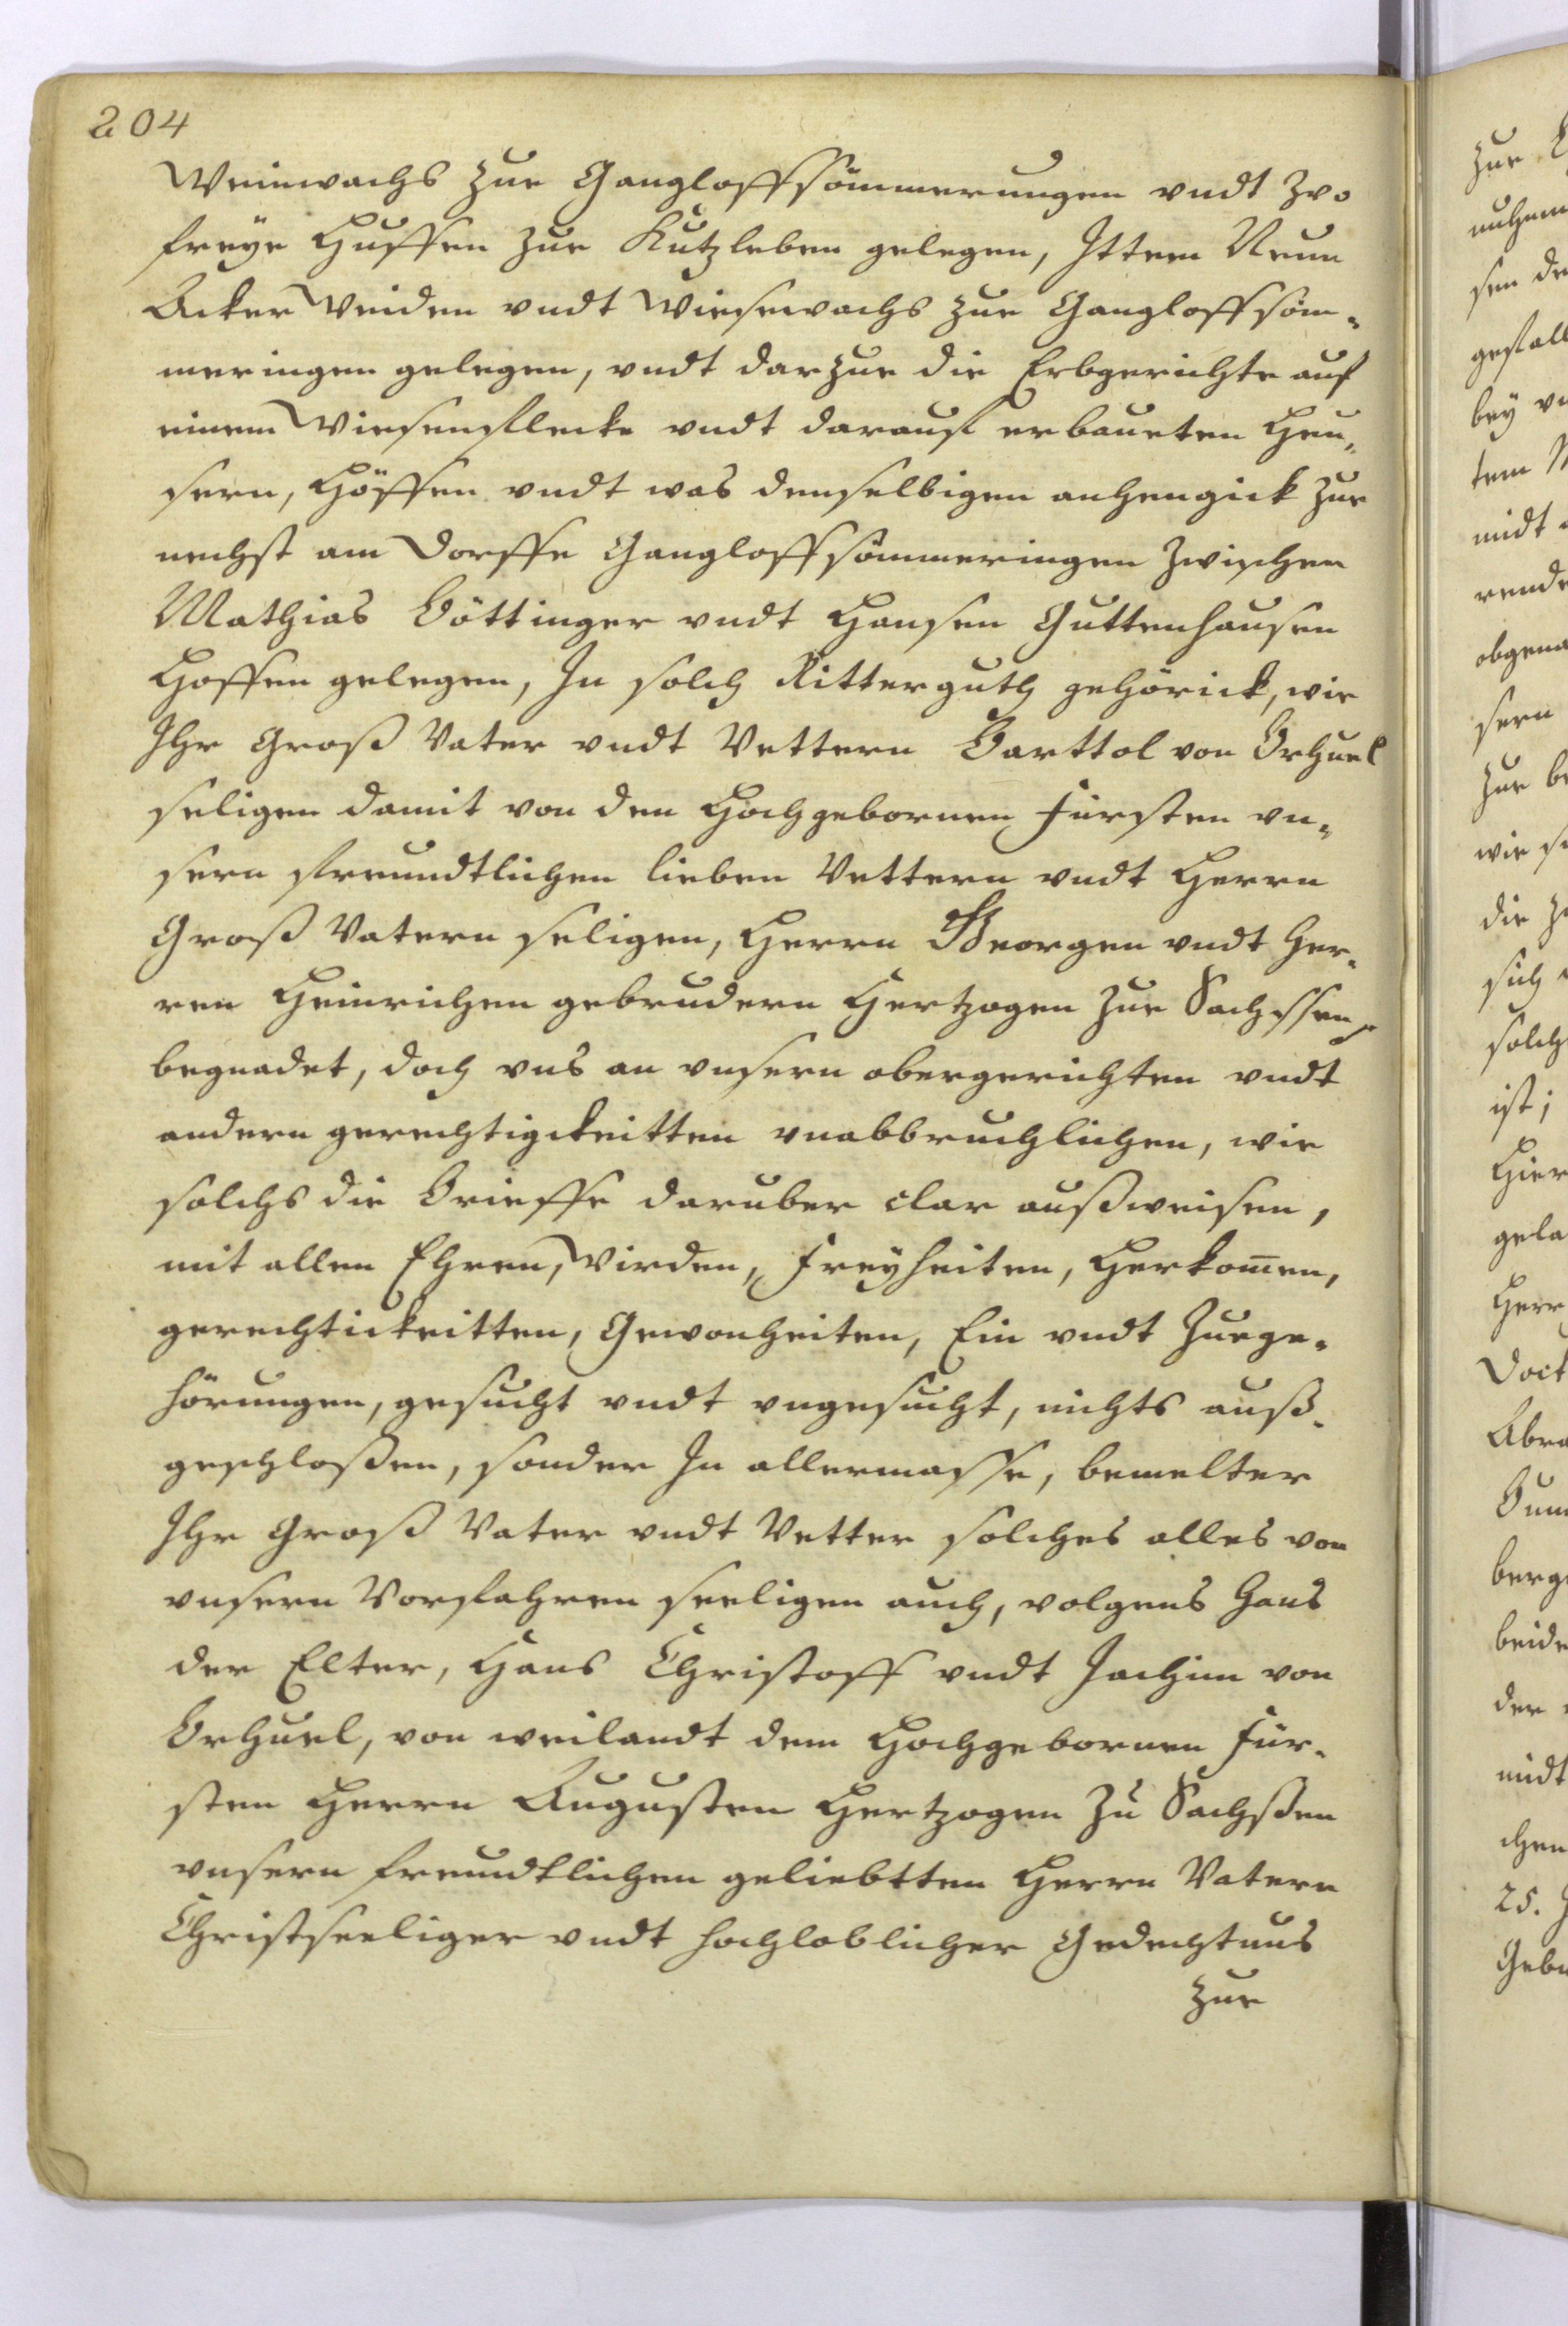 204
Weinwachs zue Gangloffsömmerungen vndt zwo
freÿe Huffen zue Kutzleben gelegen, Ittem Neun
Acker Weiden vndt Wiesewachs zue Gangloffsöm-
meringen gelegen, vndt darzue die Erbgerichte auf
einem Wiesenflecke vndt darauf erbaueten Heu-
sern, Höffen vndt was denselbigen anhengick zue
nechst am Dorffe Gangloffsömmeringen zwischen
Mathias Böttinger vndt Hansen Guttenhausen
Hoffen gelegen, In solch Ritterguth gehörick, wie
Ihr Groß Vater vndt Vettern Barttol von
seligen damit von den Hochgebornen Fürsten vn-
sern freundtlichen lieben Vettern vndt Herrn
Groß Vatern seligen, Herrn Georgen vndt Her-
ren Heinrichen gebrudern Hertzogen zue Sachssen
begnadet, doch vns an vnsern obergerichten vndt
andern gerechtigckeitten vnabbruchlichen, wie
solchs die Brieffe daruber clar außweisen,
mit allen Ehren, Wirden, Freÿheiten, Herkom̄en,
gerechtickeitten, Gewonheiten, Ein vndt Zuege-
hörungen, gesucht vndt vngesucht, nichts auß-
geschloßen, sonder In allermasse, bemelter
Ihr Groß Vater vndt Vetter solches alles von
vnsern Vorfahren seeligen auch, volgens Hans
der Elter, Hans Christoff vndt Jachim von
von weilandt dem Hochgebornen Für-
sten Herrn Augusten Hertzogen Zu Sachßen
vnsern freundtlichen geliebtten Herrn Vatern
Christseeliger vndt hochloblicher Gedechtnus
zue